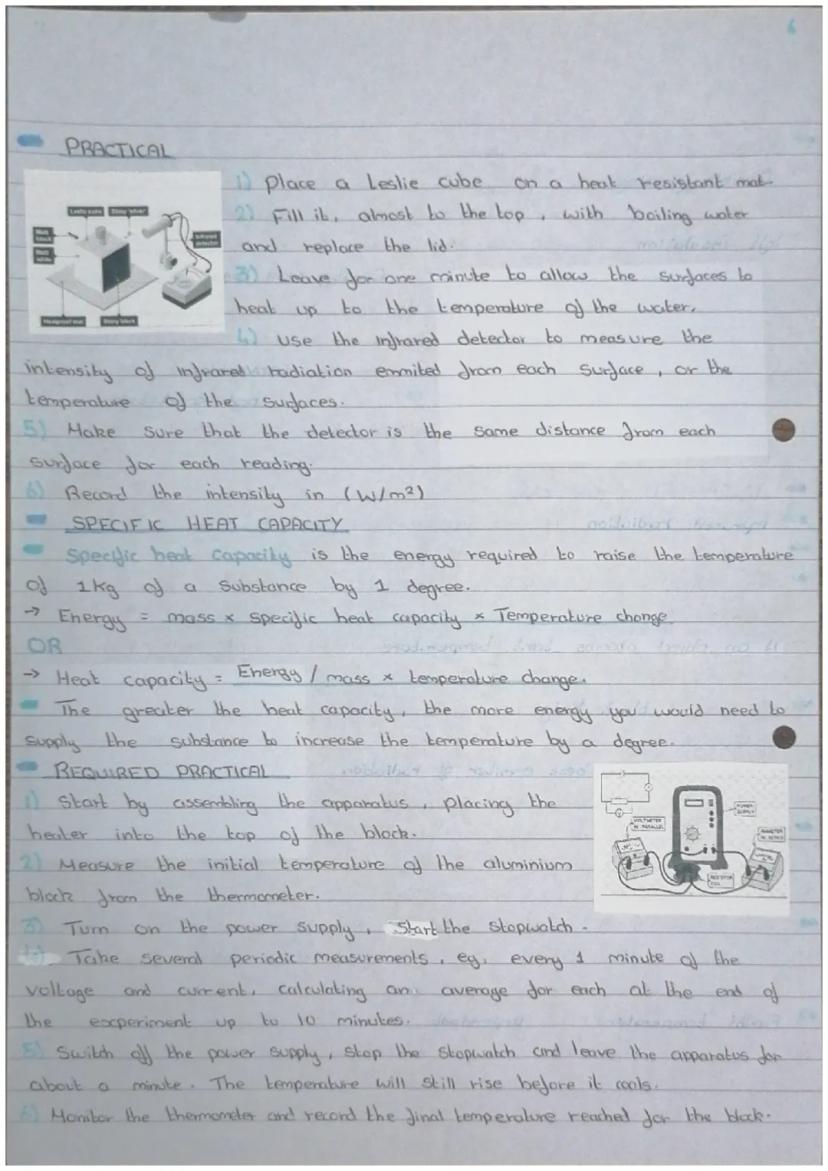 6
PRACTICAL
1) Place a Leslie cube on a heat resistant mat.
2) Fill it, almost to the top, with boiling water
and replace the lid.
3) Leave for one minute to allow the surfaces to
heat up to the temperature of the water.
4) Use the infrared detector to measure the
intensity of infrared radiation emmited from each surface, or the
temperature of the surfaces.
5) Make sure that the detector is the same distance from each
surface for each reading.
6) Record the intensity in (W/m²)
SPECIFIC HEAT CAPACITY
Specific heat capacity is the energy required to raise the temperature
of 1kg of a substance by 1 degree.
→ Energy = mass × specific heat capacity × Temperature change
OR
→ Heat capacity = Energy / mass × temperature change.
The greater the heat capacity, the more energy you would need to
supply the substance to increase the temperature by a degree.
REQUIRED PRACTICAL
1) Start by assembling the apparatus, placing the
heater into the top of the block.
2) Measure the initial temperature of the aluminium
block from the thermometer.
3) Turn on the power supply, Start the stopwatch.
4) Take several periodic measurements, eg, every 1 minute of the
voltage and current, calculating an average for each at the end of
the experiment up to 10 minutes.
5) Switch off the power supply, stop the stopwatch and leave the apparatus for
about a minute. The temperature will still rise before it cools.
6) Monitor the thermometer and record the final temperature reached for the block.
Leslie cube
Shiny 'silver'
Matt black
Matt white
Infrared detector
Heatproof mat
Shiny black
VOLTMETER IN PARALLEL
POWER SUPPLY
AMMETER IN SERIES
RESISTOR COIL